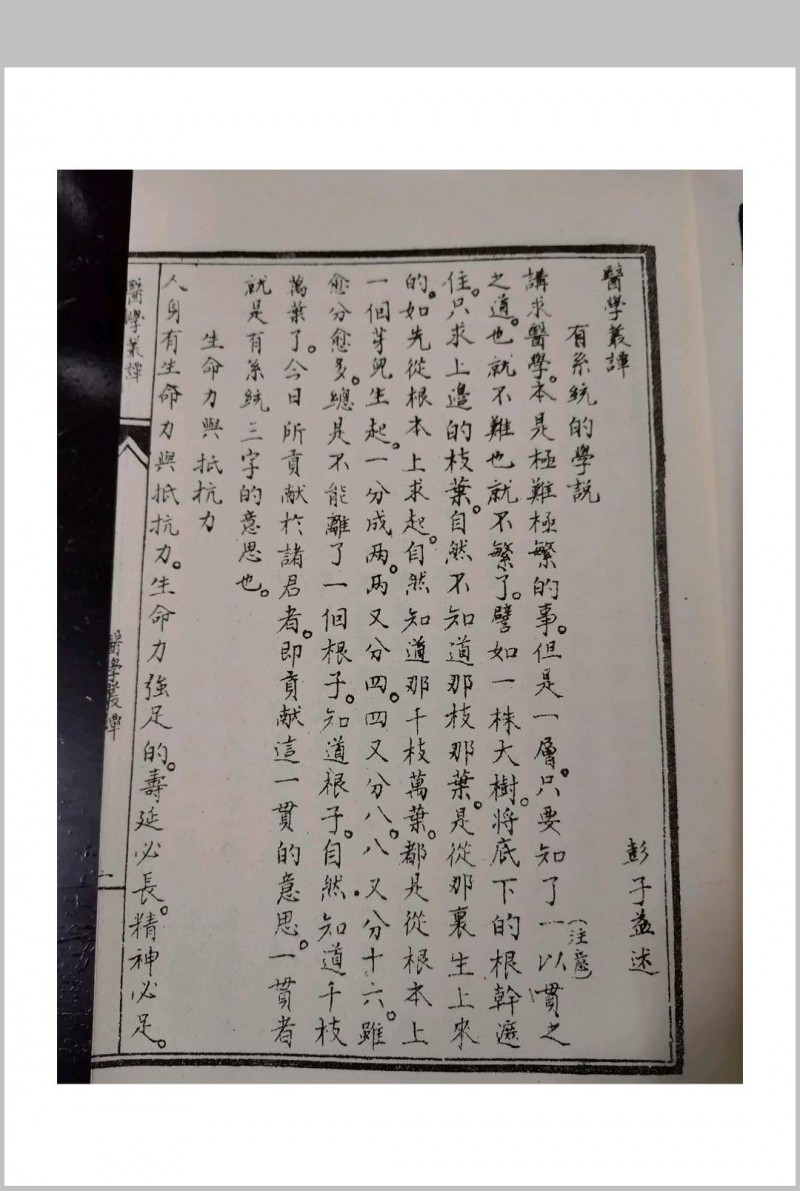 醫學叢譚
彭子益述
有系統的學説
講求醫學。本是極難極繁的事。但是一層。只要知了一以慣之
(注意)
之道。也就不難也就不繁了。譬如一株大樹。將底下的根幹遮
住。只求上邊的枝葉。自然不知道那枝那葉。是從那裏生上來
的。如先從根本上求起。自然知道那千枝萬葉。都是從根本上
一個芽兒生起。一分成兩。兩又分四。四又分八。八又分十六。雖
愈分愈多。總是不能離了一個根子。知道根子。自然知道千枝
萬葉了。今日所貢献於諸君者。即貢献這一貫的意思。一貫者
就是有系統三字的意思也。
生命力與抵抗力
人身有生命力與抵抗力。生命力強足的。壽延必長。精神必足。
醫學叢譚
醫學叢譚
一